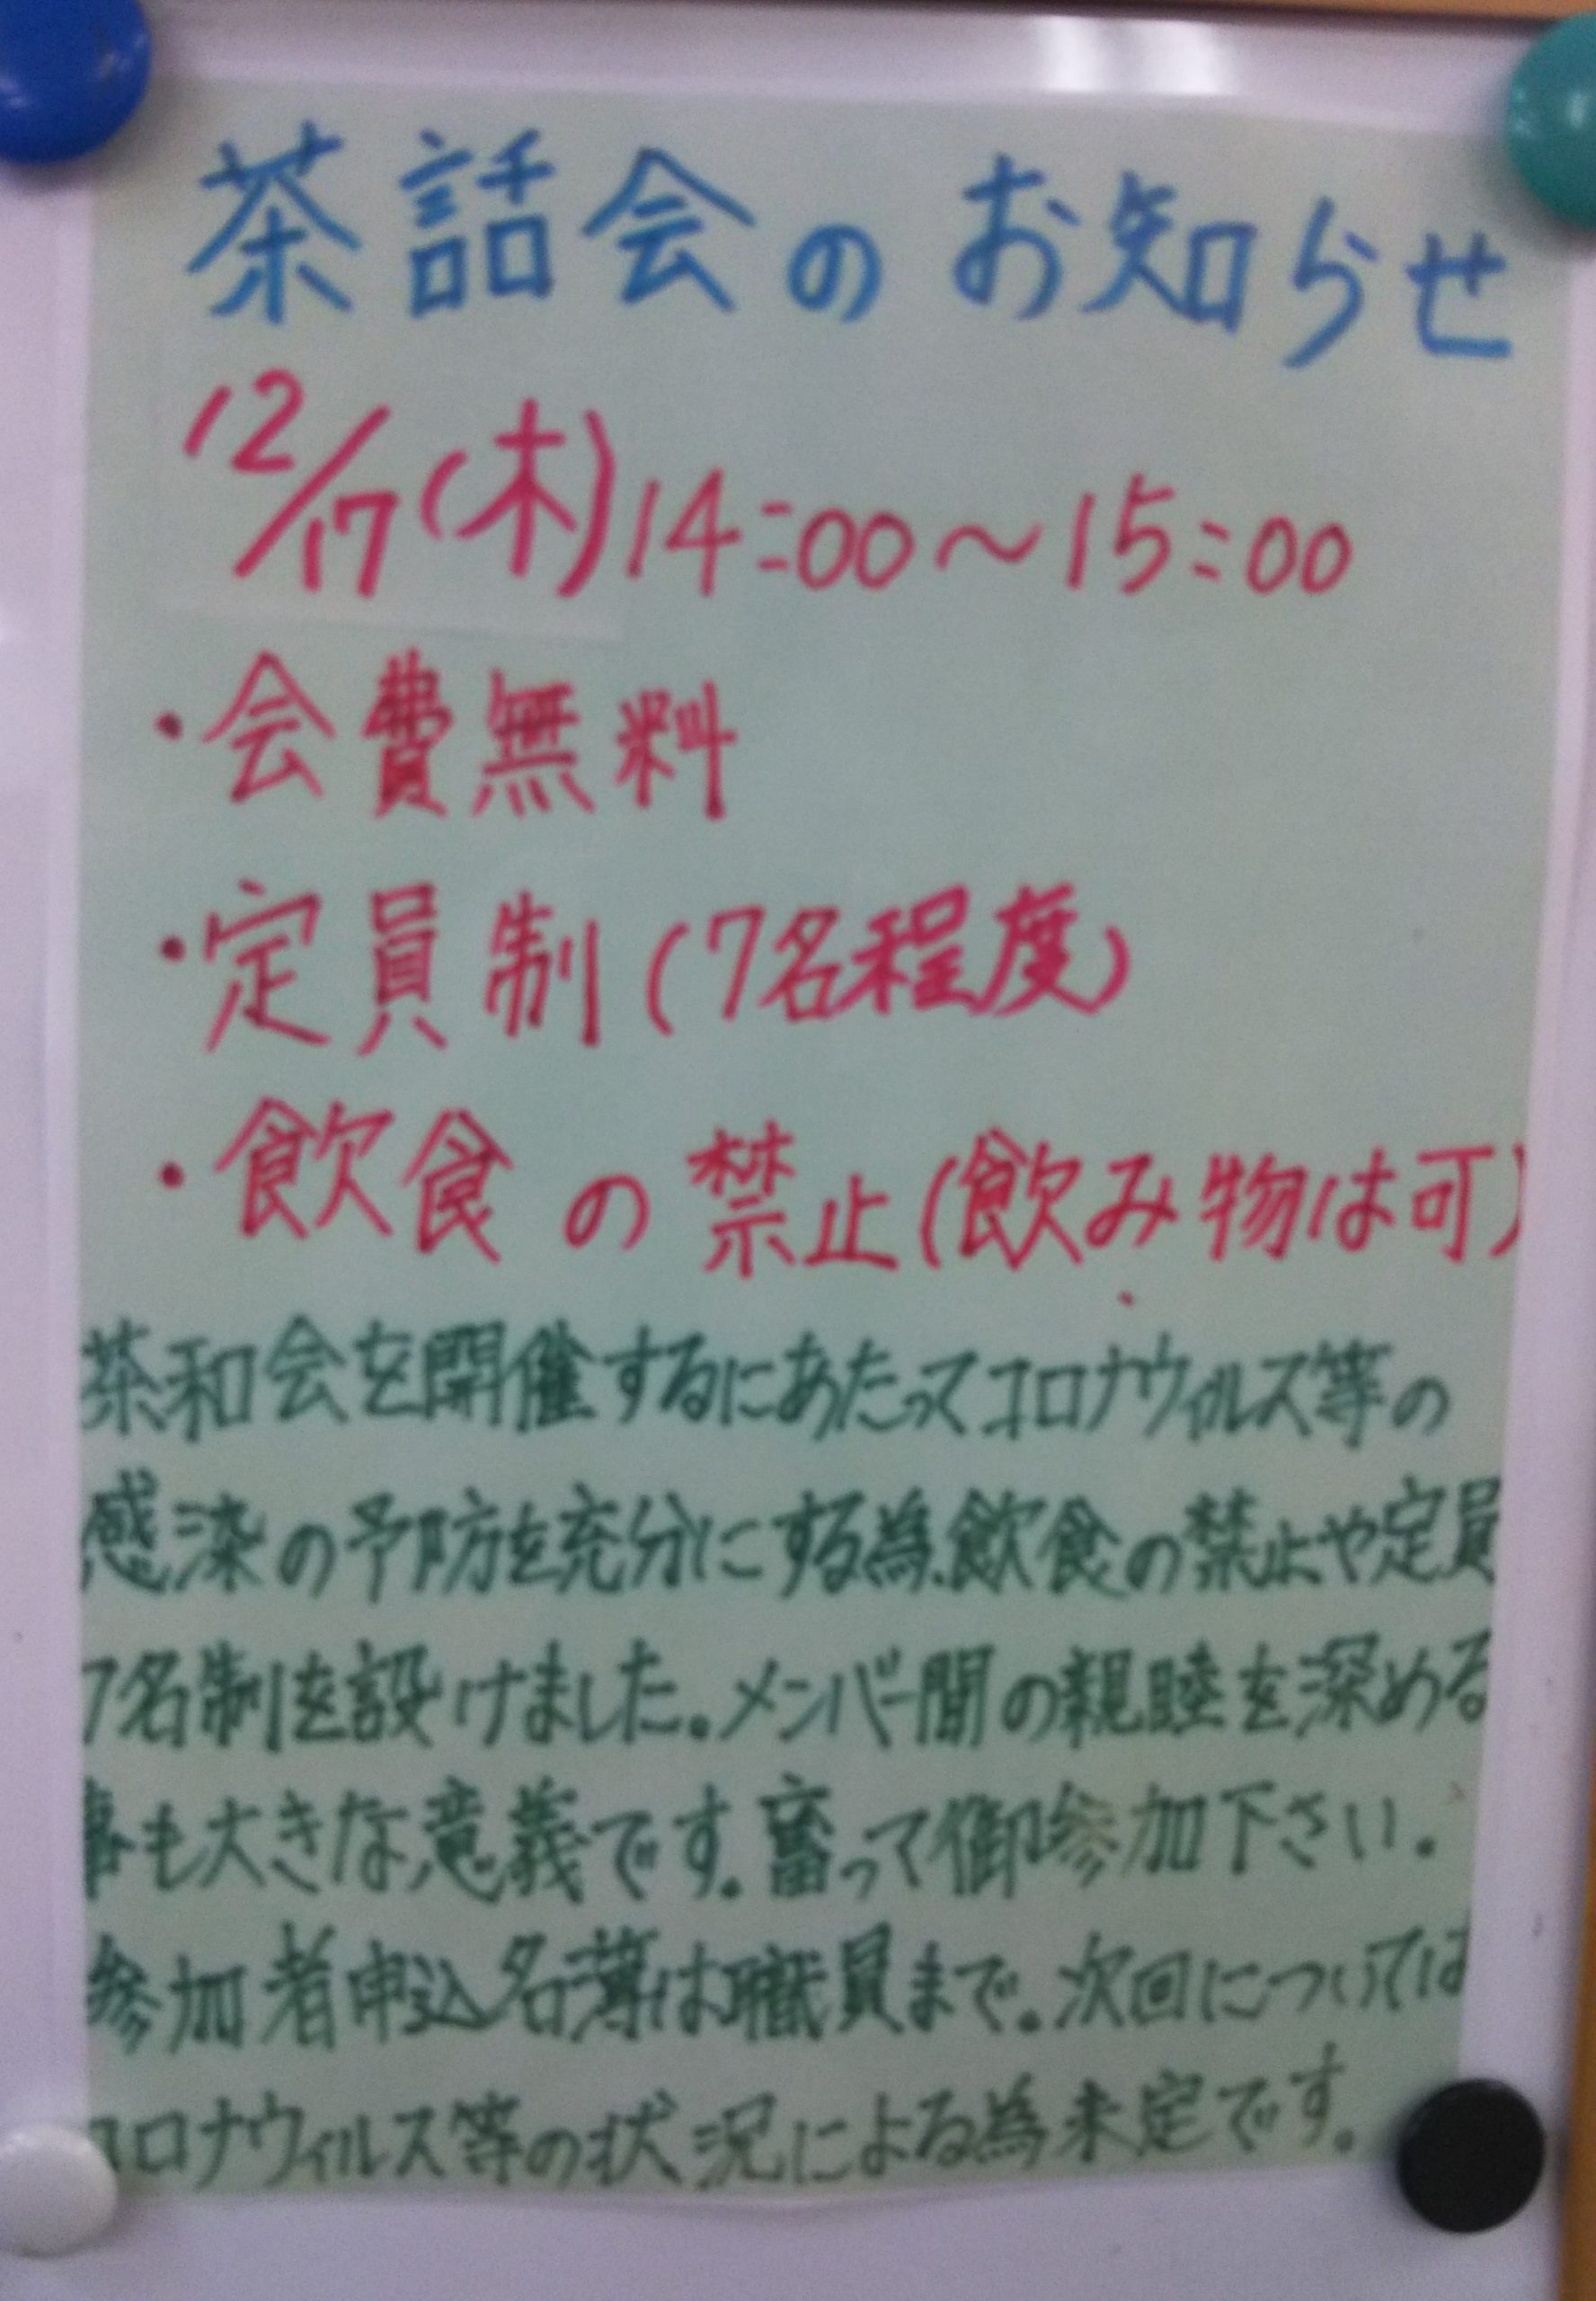 茶話会のお知らせ
12/17(木)14:00～15:00
・会費無料
・定員制(7名程度)
・飲食の禁止(飲み物は可)
茶和会を開催するにあたってコロナウィルス等の
感染の予防を充分にする為、飲食の禁止や定員
7名制を設けました。メンバー間の親睦を深める
事も大きな意義です。奮って御参加下さい。
参加者申込名薄は職員まで。次回については
コロナウィルス等の状況による為未定です。